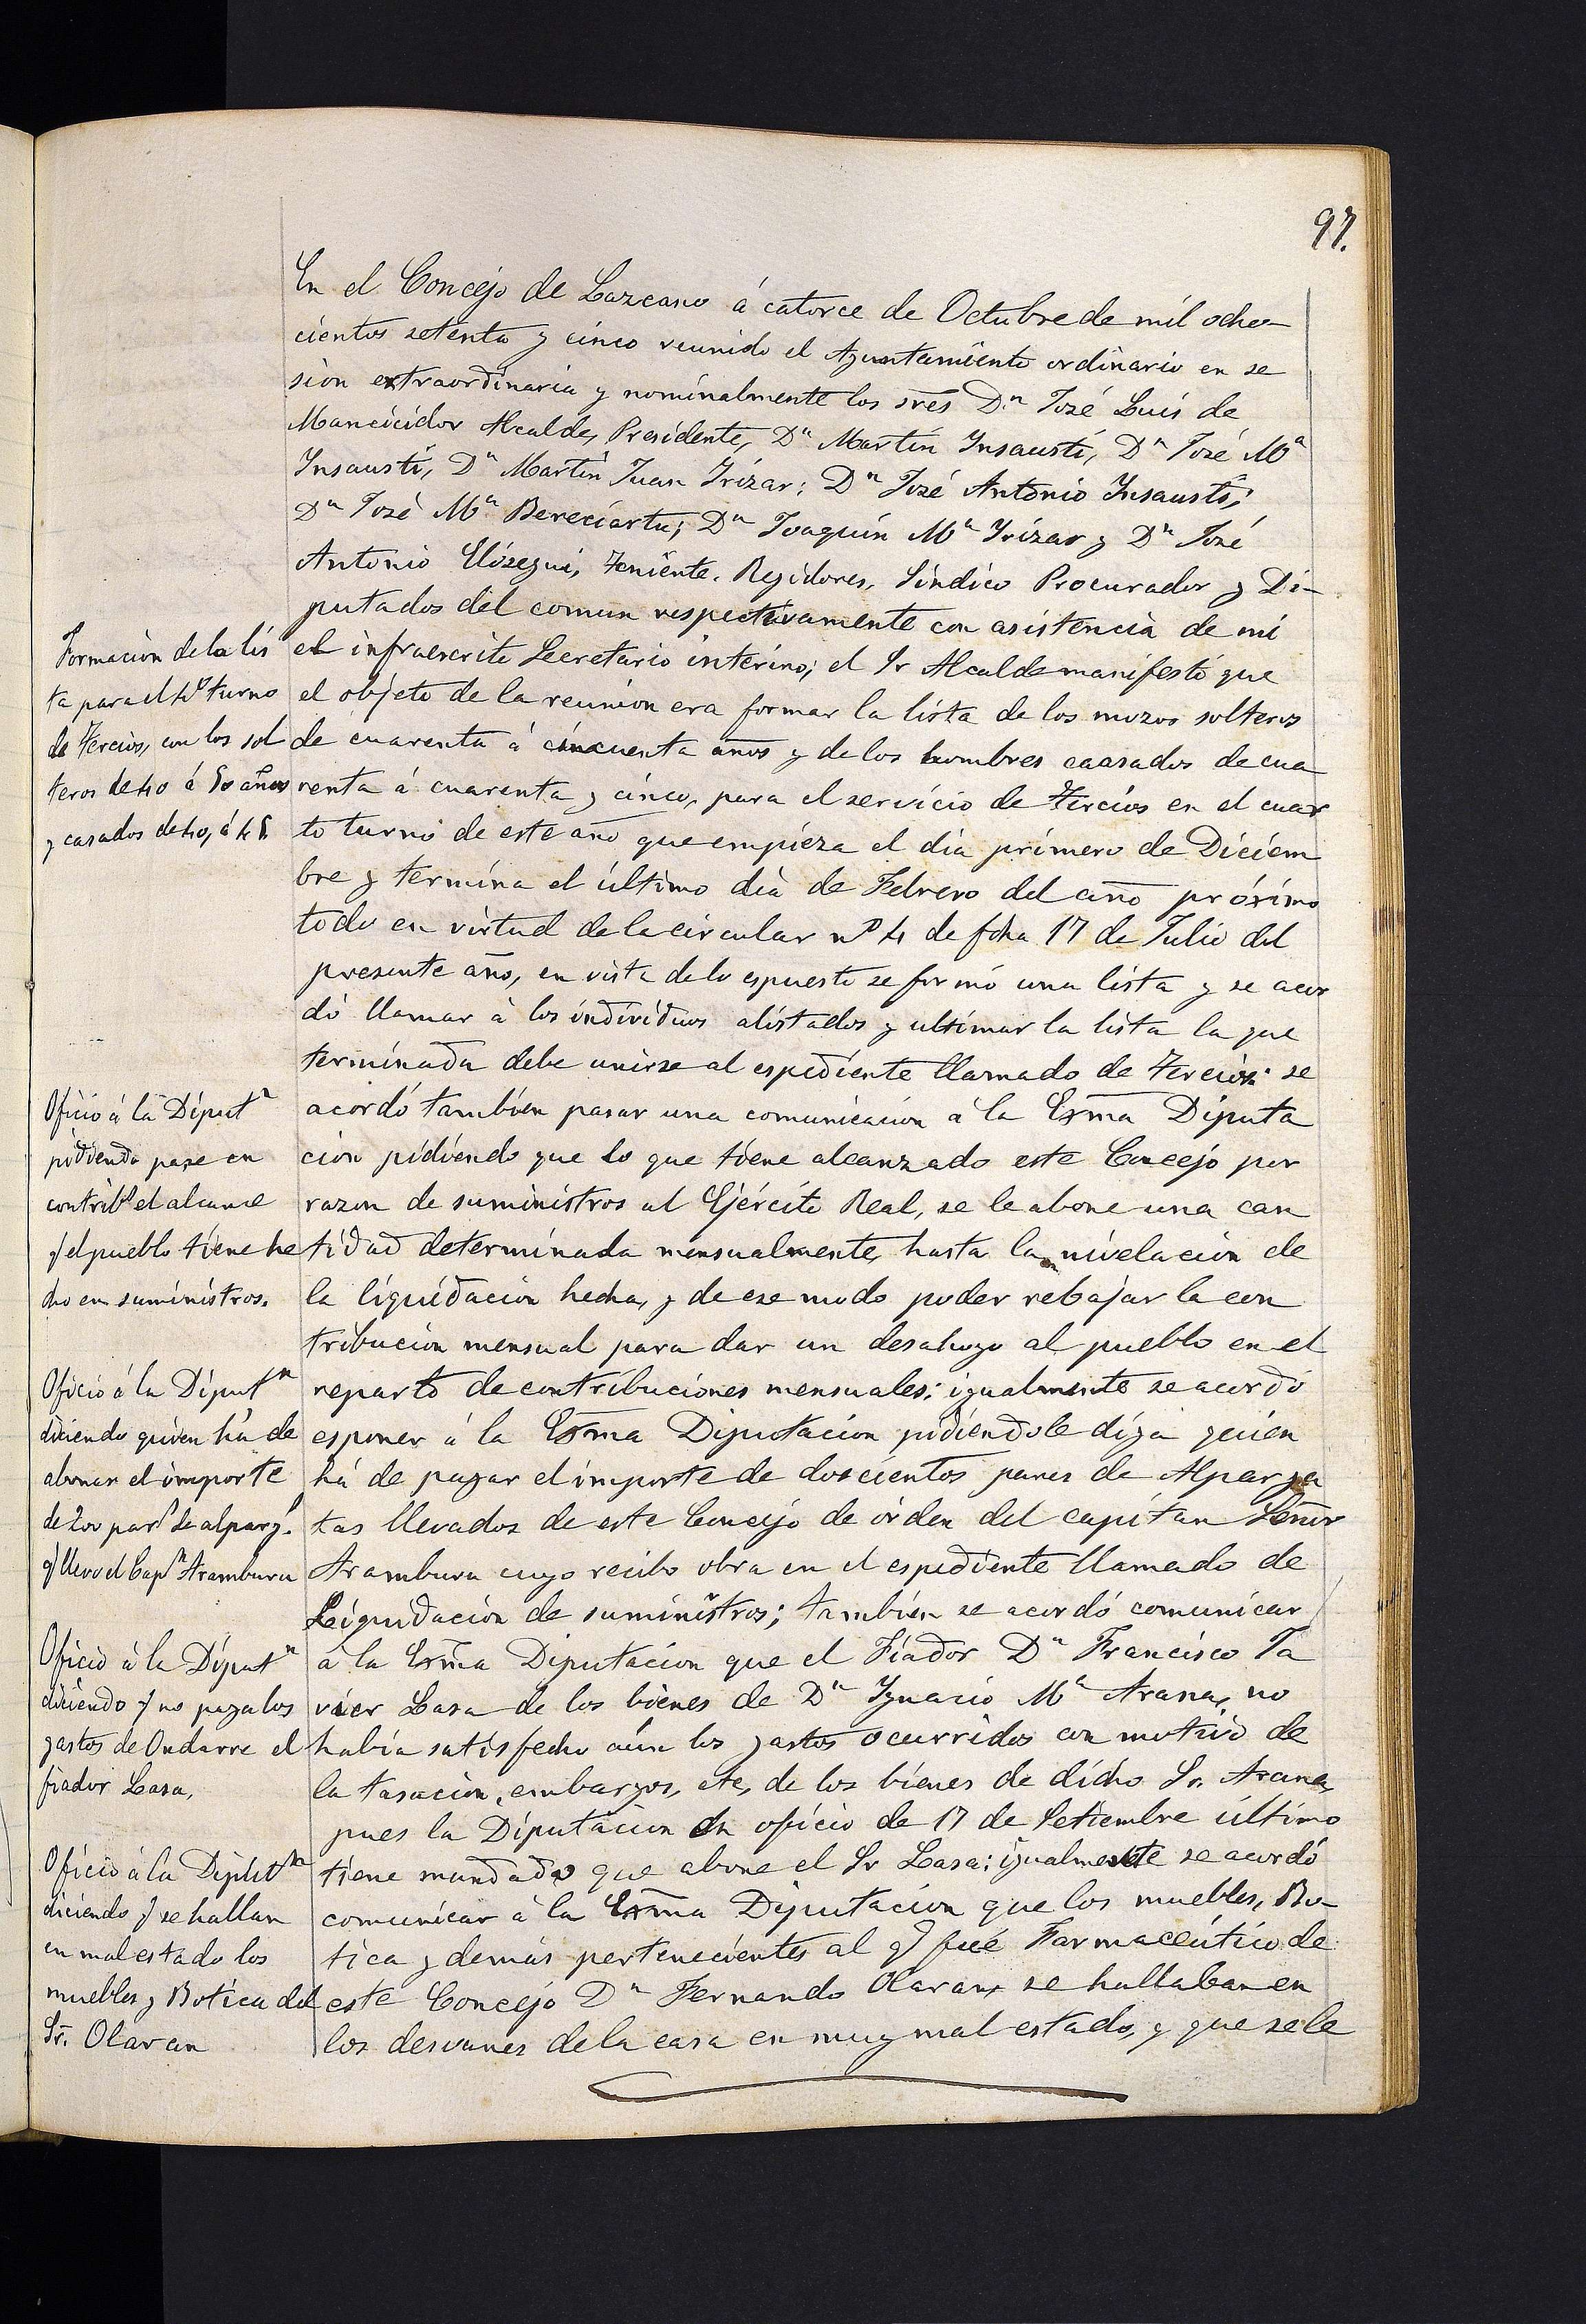 97.
En el Concejo de Lazcano á catorce de Octubre de mil ocho-
cientos setenta y cinco reunido el Ayuntamiento ordinario en se
sion extraordinaria y nominalmente los sres Dn José Luis de
Mancicidor Alcalde, Presidente, Dn Martín Insausti, Dn José Ma
Insausti, Dn Martín Juan Irízar; Dn José Antonio Insausti;
Dn José Ma Bereciartu; Dn Joaquín Ma Irízar y Dn José
Antonio Elósegui, Teniente, Regidores, Síndico Procurador y Di-
putados del comun respectivamente con asistencia de mi
el infraescrito Secretario interino; el Sr Alcalde manifestó que
el objeto de la reunion era formar la lista de los mozos solteros
de cuarenta á cincuenta años y de los hombres casados de cua
renta á cuarenta y cinco, para el servicio de Tercios en el cuar
to turno de este año que empieza el dia primero de Diciem
bre y termina el último dia de Febrero del año próximo
todo en virtud de la circular no 4 de fcha 17 de Julio del
presente año, en vista de lo espuesto se formó una lista y se acor
dó llamar á los individuos alistados y ultimar la lista la que
terminada debe unirse al espediente llamado de Tercios: se
acordó tambien pasar una comunicacion á la Exma Diputa
cion pidiendo que lo que tiene alcanzado este Concejo por
razon de suministros al Ejército Real, se le abone una can
tidad determinada mensualmente, hasta la nivelacion de
la liquidacion hecha, y de ese modo poder rebajar la con
tribucion mensual para dar un desahogo al pueblo en el
reparto de contribuciones mensuales; igualmente se acordó
esponer á la Exma Diputacion pidiendole diga quien
há de pagar el importe de doscientos pares de Alparga
tas llevados de este Concejo de órden del capitan Señor
Aramburu cuyo recibo obra en el espediente llamado de
Liquidacion de suministros; tambien se acordó comunicar
á la Exma Diputacion que el Fiador Dn Francisco Ja
vier Lasa de los bienes de Dn Ignacio Ma Arana, no
habia satisfecho aún los gastos ocurridos con motivo de
la tasacion, embargos, etc, de los bienes de dicho Sr. Arana,
pues la Diputacion en oficio de 17 de Setiembre último
tiene mandado que abone el Sr Lasa; igualmente se acordó
comunicar á la Exma Diputacion que los muebles, Bo-
tica y demás pertenecientes al q fué Farmaceútico de
este Concejo Dn Fernando Olaran, se hallaban en
los desvanes de la casa en muy mal estado, y que se le
Formacion de la lis
ta para el 4o turno
de Tercios, con los sol
teros de 40 á 50 años
y casados de 40, á 45.
Oficio á la Diputn
pidiendo pase en
contribn el alcance
q el pueblo tiene he
cho en suministros.
Oficio á la Diputn
diciendo quien há de
abonar el importe
de 200 pars de alparg.
q llevó el Capn Aramburu
Oficio á la Diputn
diciendo q no paga los
gastos de Ondarre el
fiador Lasa.
Oficio á la Diputn
diciendo q se hallan
en mal estado los
muebles y Botica del
Sr. Olaran